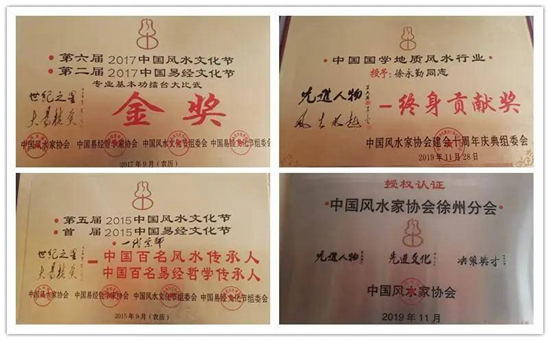 ·第六届2017中国风水文化节
·第二届2017中国易经文化节
专业基本功擂台大比武
世纪之星
金奖
中国风水家协会 中国易经哲学家协会 中国风水文化节组委会 中国易经文化节组委会
2017年9月(农历)
·中国国学地质风水行业·
授予:徐永勤同志
先进人物
终身贡献奖
中国风水家协会建会十周年庆典组委会
2019年11月28日
·第五届2015中国风水文化节
·首 届2015中国易经文化节
一代宗师
世纪之星
中国百名风水传承人
中国百名易经哲学传承人
中国风水家协会 中国易经哲学家协会 中国风水文化节组委会 中国易经文化节组委会
2015年9月(农历)
授权认证
·中国风水家协会徐州分会·
先进人物 先进文化 决策英才
中国风水家协会
2019年11月